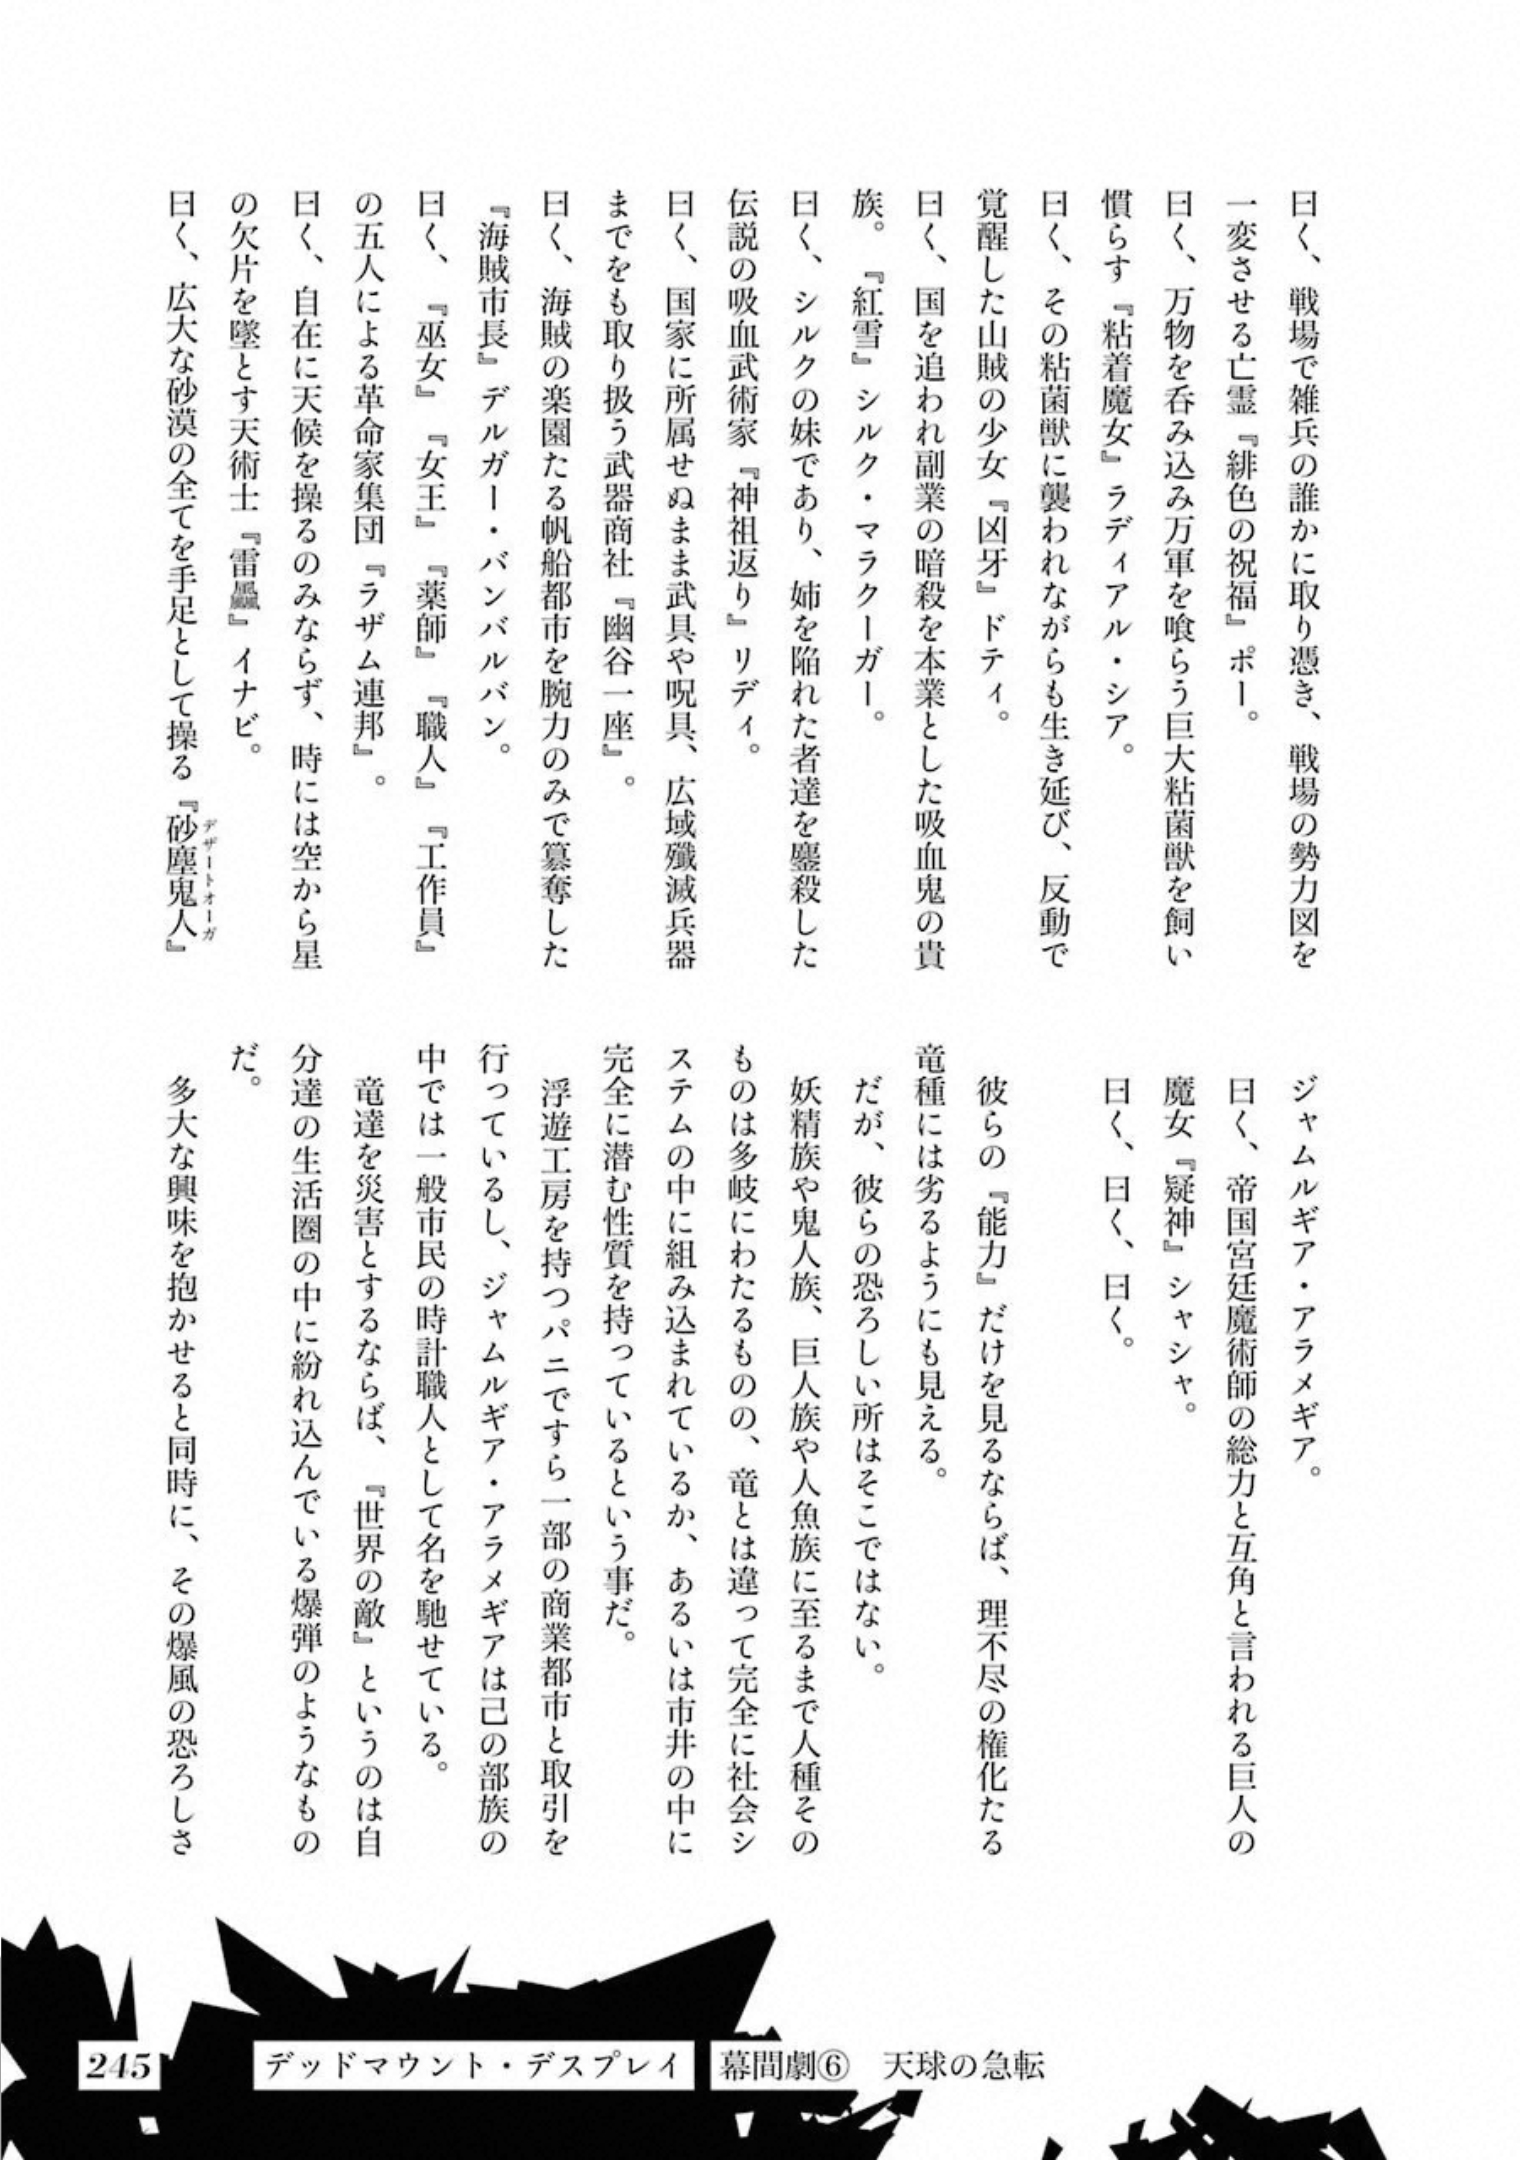 曰く、戦場で雑兵の誰かに取り憑き、戦場の勢力図を
一変させる亡霊『緋色の祝福』ポー。
曰く、万物を呑み込み万軍を喰らう巨大粘菌獣を飼い
慣らす『粘着魔女』ラディアル・シア。
曰く、その粘菌獣に襲われながらも生き延び、反動で
覚醒した山賊の少女『凶牙』ドティ。
曰く、国を追われ副業の暗殺を本業とした吸血鬼の貴
族。『紅雪』シルク・マラクーガー。
曰く、シルクの妹であり、姉を陥れた者達を鏖殺した
伝説の吸血武術家『神祖返り』リディ。
曰く、国家に所属せぬまま武具や呪具、広域殲滅兵器
までをも取り扱う武器商社『幽谷一座』。
曰く、海賊の楽園たる帆船都市を腕力のみで簒奪した
『海賊市長』デルガー・バンバルバン。
曰く、『巫女』『女王』『薬師』『職人』『工作員』
の五人による革命家集団『ラザム連邦』。
曰く、自在に天候を操るのみならず、時には空から星
の欠片を墜とす天術士『雷飍』イナビ。
曰く、広大な砂漠の全てを手足として操る『砂塵鬼人』
デザートオーガ
ジャムルギア・アラメギア。
曰く、帝国宮廷魔術師の総力と互角と言われる巨人の
魔女『疑神』シャシャ。
曰く、曰く、曰く。
彼らの『能力』だけを見るならば、理不尽の権化たる
竜種には劣るようにも見える。
だが、彼らの恐ろしい所はそこではない。
妖精族や鬼人族、巨人族や人魚族に至るまで人種その
ものは多岐にわたるものの、竜とは違って完全に社会シ
ステムの中に組み込まれているか、あるいは市井の中に
完全に潜む性質を持っているという事だ。
浮遊工房を持つパニですら一部の商業都市と取引を
行っているし、ジャムルギア・アラメギアは己の部族の
中では一般市民の時計職人として名を馳せている。
竜達を災害とするならば、『世界の敵』というのは自
分達の生活圏の中に紛れ込んでいる爆弾のようなもの
だ。
多大な興味を抱かせると同時に、その爆風の恐ろしさ
245 デッドマウント・デスプレイ 幕間劇⑥ 天球の急転